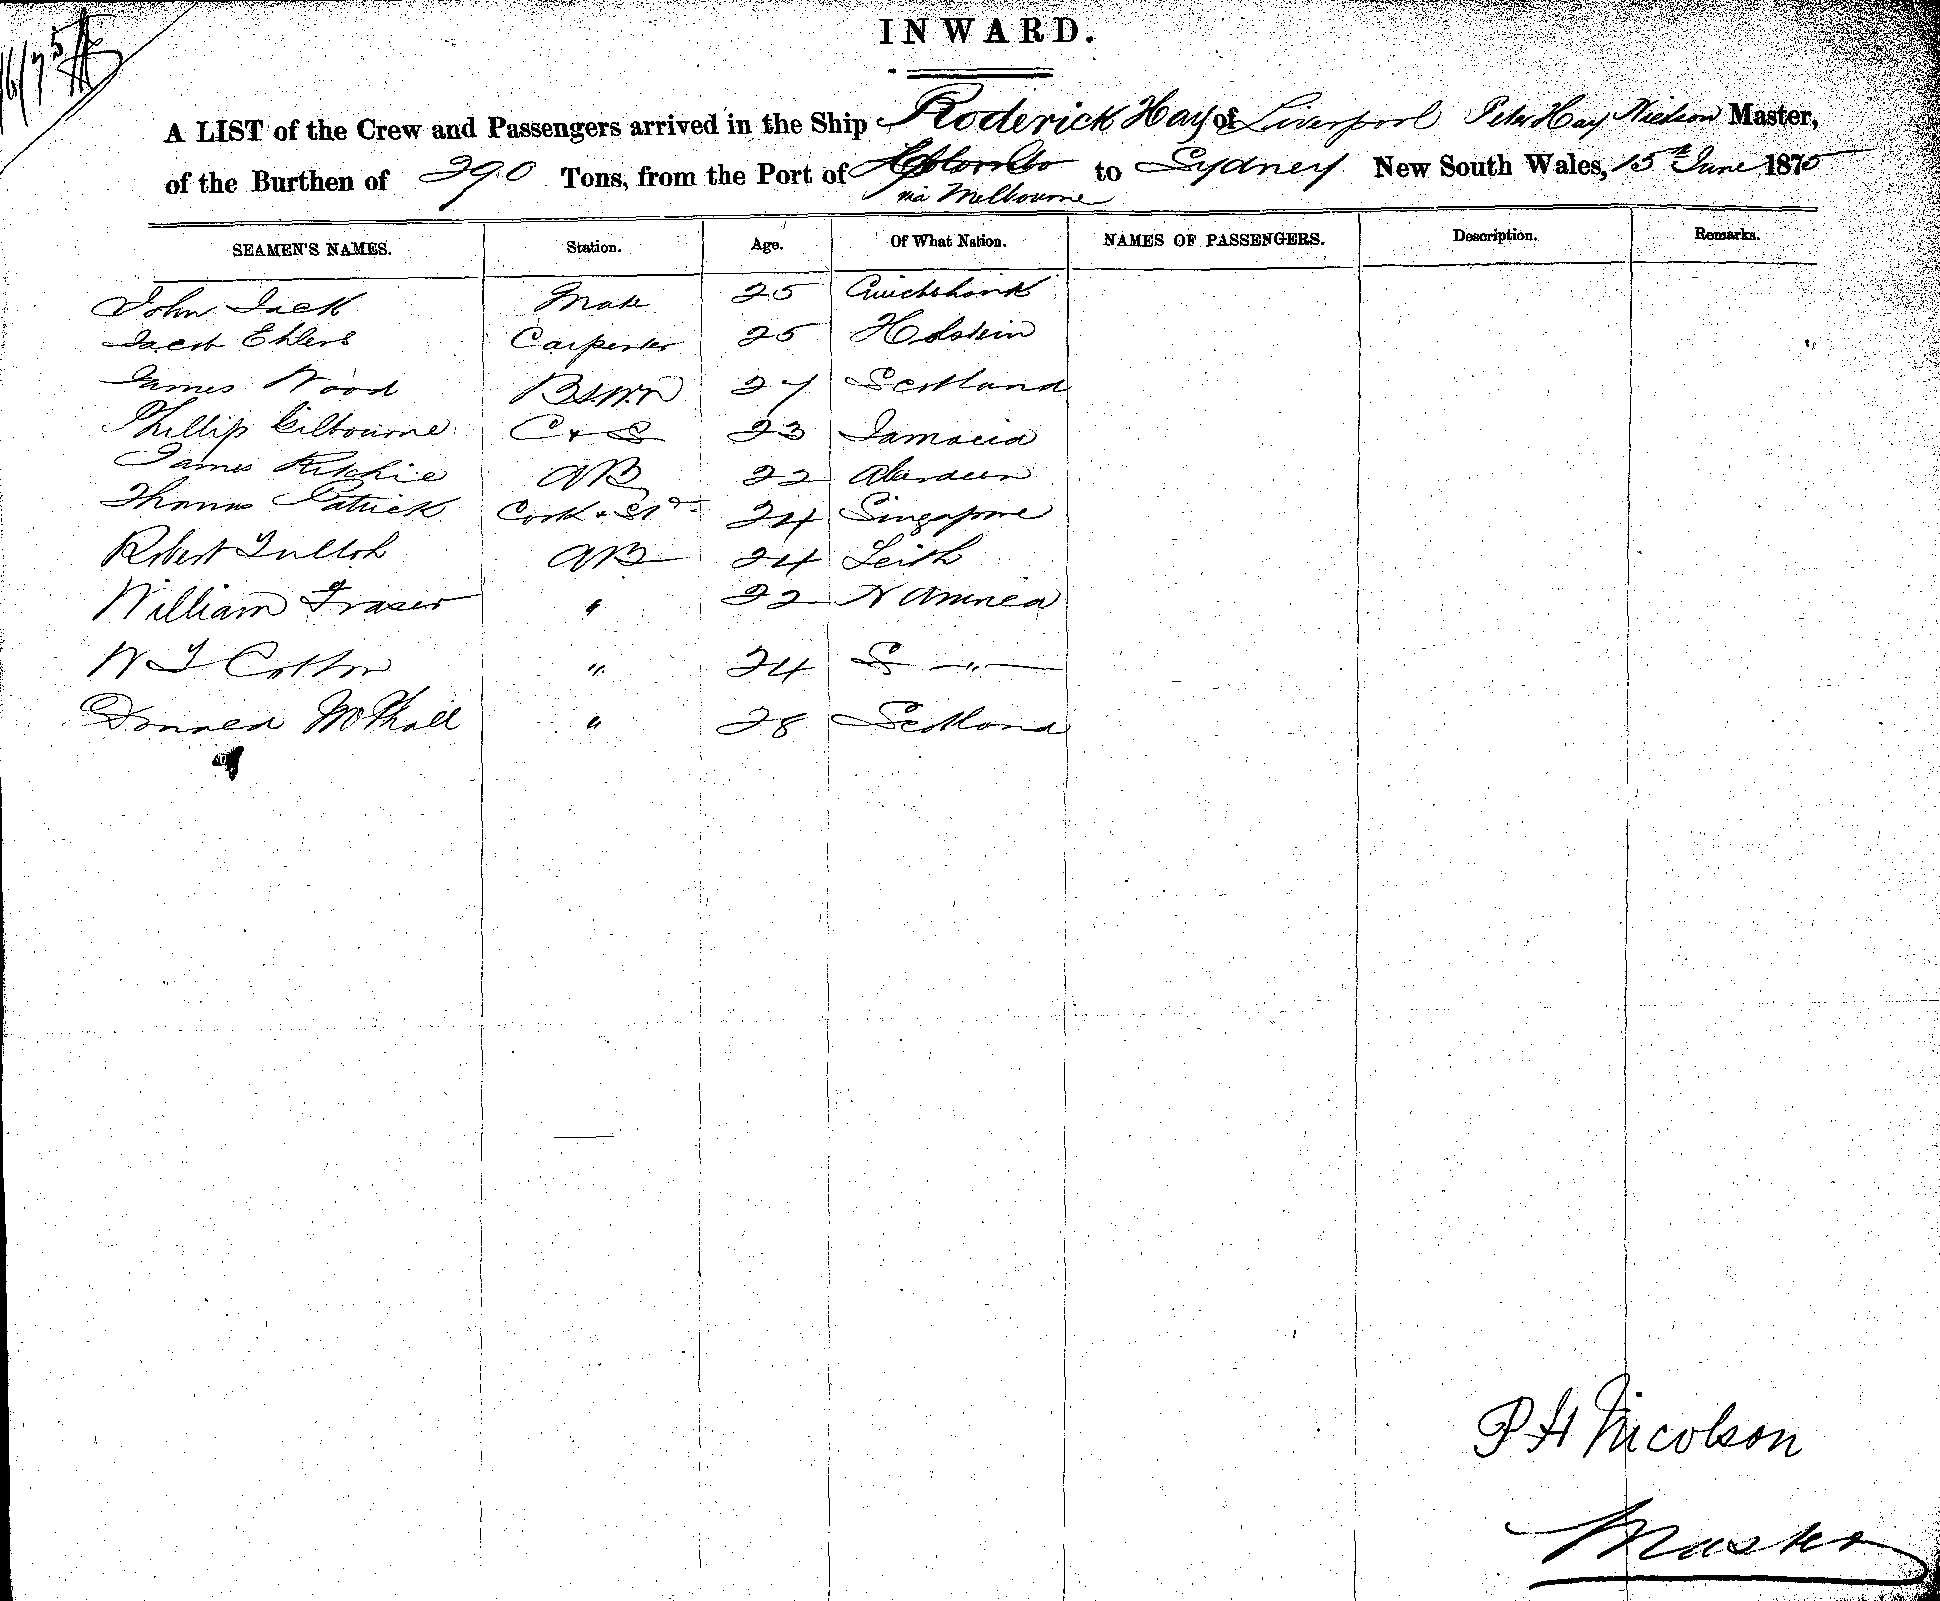 16/75
INWARD.
A LIST of the Crew and Passengers arrived in the Ship Roderick Hay of Liverpool Peter Hay Master,
of the Burthen of 290 Tons, from the Port of Colombo to Sydney New South Wales, 15th June 1875
via Melbourne
SEAMEN'S NAMES. Station. Age. Of What Nation. NAMES OF PASSENGERS. Description. Remarks.
John Jack Mate 25
Jacob Ehlers Carpenter 25 Holstein
James Wood Bswn 27 Scotland
Phillip Gilbourne C & S 23 Jamacia
James Ritchie AB 22 Aberdeen
Thomas Patrick Cook & Std 24 Singapore
Robert Tulloh AB 24 Leith
William Fraser " 22 N America
W J Cotton " 24 S "
Donald McPhall " 28 Scotland
P H Nicolson
Master